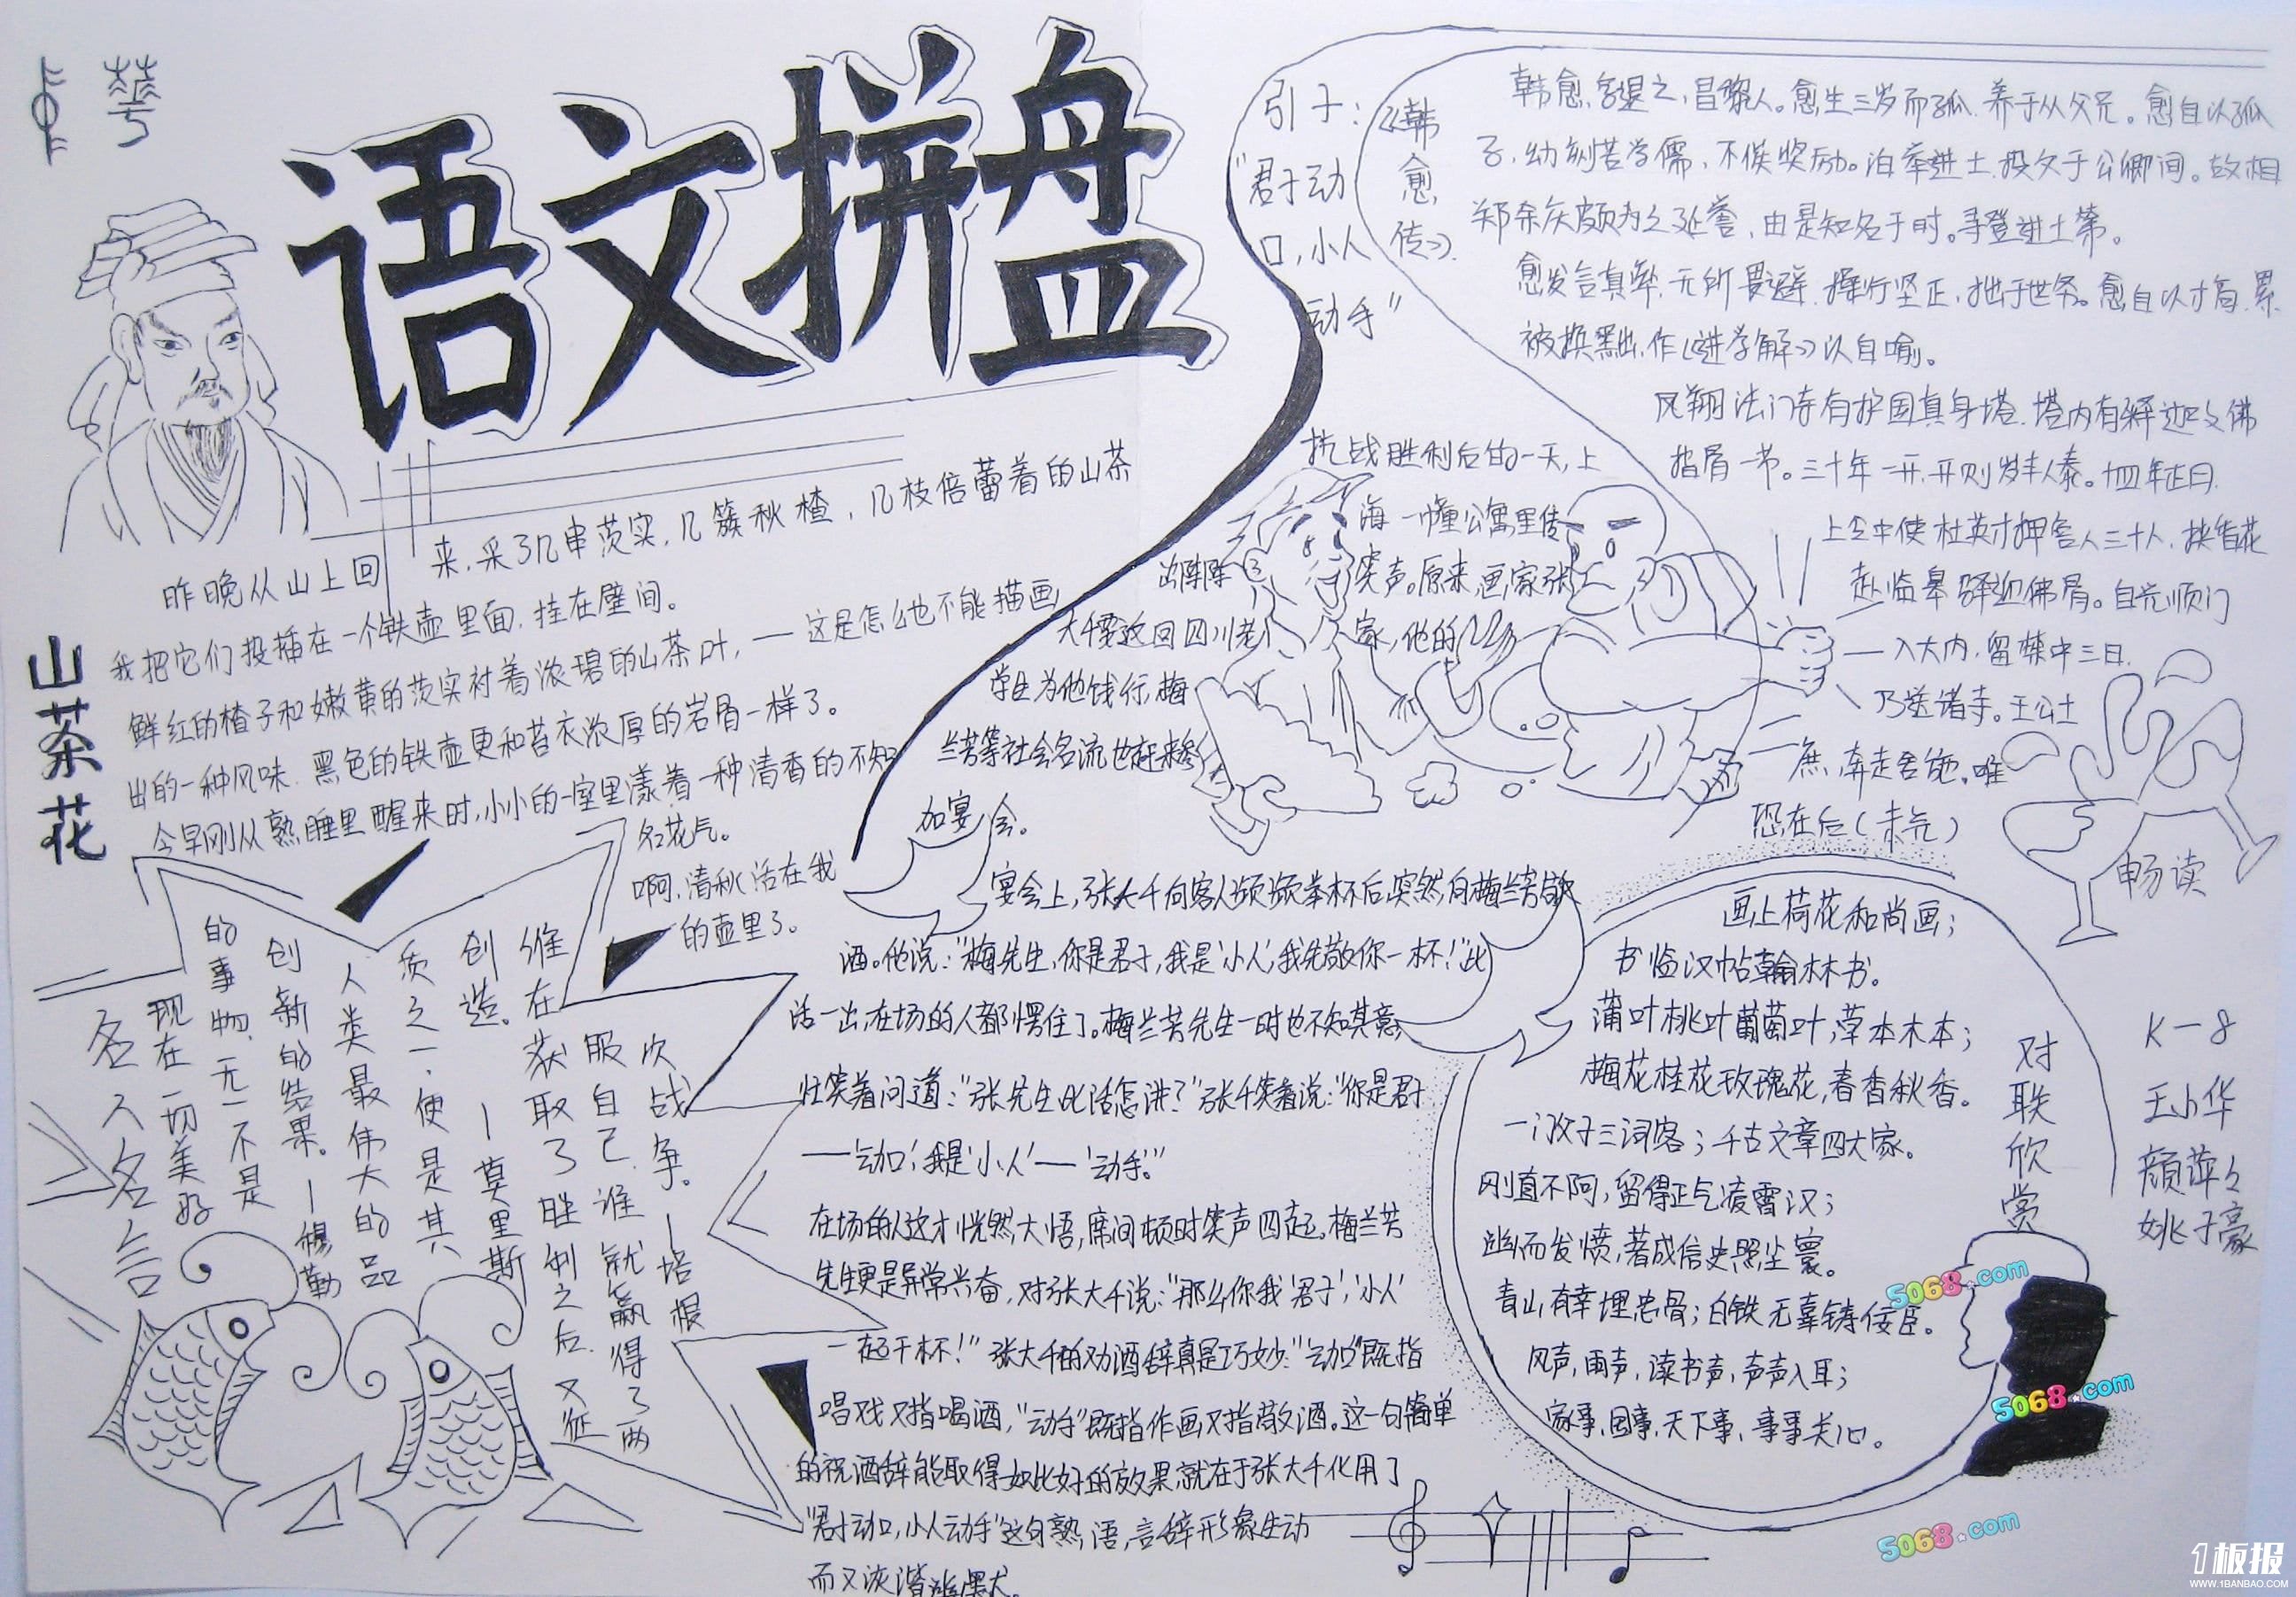 语文拼盘
山茶花
昨晚从山上回来,采了几串茨实,几簇秋楂,几枝倍蕾着的山茶
我把它们投插在一个铁壶里面,挂在壁间。
鲜红的楂子和嫩黄的茨实衬着浓碧的山茶叶,—这是怎么也不能描画
出的一种风味。黑色的铁壶更和苔衣浓厚的岩骨一样了。
今早刚从熟睡里醒来时,小小的一室里漾着一种清香的不知
名花气。
啊,清秋活在我
的壶里了。
名人名言
现在一切美好
的事物,无一不是
创新的结果。—穆勒
人类最伟大的品
质之一,便是其
创造。—莫里斯
谁在获取了胜利之后又征
服自己,谁就赢得了两
次战争。—培根
引子:
"君子动
口,小人
动手"
抗战胜利后的一天,上
海一幢公寓里传
出阵阵笑声。原来,画家张
大千要返回四川老家,他的
学生为他饯行,梅
兰芳等社会名流也赶来参
加宴会。
宴会上,张大千向客人频频举杯后,突然向梅兰芳敬
酒。他说:"梅先生,你是君子,我是'小人',我先敬你一杯!"此
话一出,在场的人都愣住了。梅兰芳先生一时也不知其意,
忙笑着问道:"张先生此话怎讲?"张千笑着说:"你是君子
——'动口',我是'小人'—'动手'。"
在场的人这才恍然大悟,席间顿时笑声四起。梅兰芳
先生更是异常兴奋,对张大千说:"那么你我'君子','小人'
一起干杯!"张大千的劝酒辞真是巧妙:"动口"既指
唱戏又指喝酒,"动手"既指作画又指敬酒。这一句简单
的祝酒辞能取得如此好的效果,就在于张大千化用了
"君子动口,小人动手"这句熟语,言辞形象生动
而又诙谐幽默。
《韩愈传》
韩愈,字退之,昌黎人。愈生三岁而孤,养于从父兄。愈自以孤
子,幼刻苦学儒,不俟奖励。洎举进士,投文于公卿间。故相
郑余庆颇为之延誉,由是知名于时。寻登进士第。
愈发言真率,无所畏避,操行坚正,拙于世务。愈自以才高,累
被摈黜,作《进学解》以自喻。
凤翔法门寺有护国真身塔,塔内有释迦文佛
指骨一节。三十年一开,开则岁丰人泰。十四年正月,
上令中使杜英才押宫人三十人,持香花
赴临皋驿迎佛骨。自光顺门
入大内,留禁中三日,
乃送诸寺。王公士
庶,奔走舍施,唯
恐在后(未完)
畅读
对联欣赏
画上荷花和尚画;
书临汉帖翰林书。
蒲叶桃叶葡萄叶,草本木本;
梅花桂花玫瑰花,春香秋香。
一门父子三词客;千古文章四大家。
刚直不阿,留得正气凌霄汉;
幽而发愤,著成信史照尘寰。
青山有幸埋忠骨;白铁无辜铸佞臣。
风声,雨声,读书声,声声入耳;
家事,国事,天下事,事事关心。
K—8
王小华
颜萍々
姚子豪
5068.com
5068.com
5068.com
1板报
WWW.1BANBAO.COM